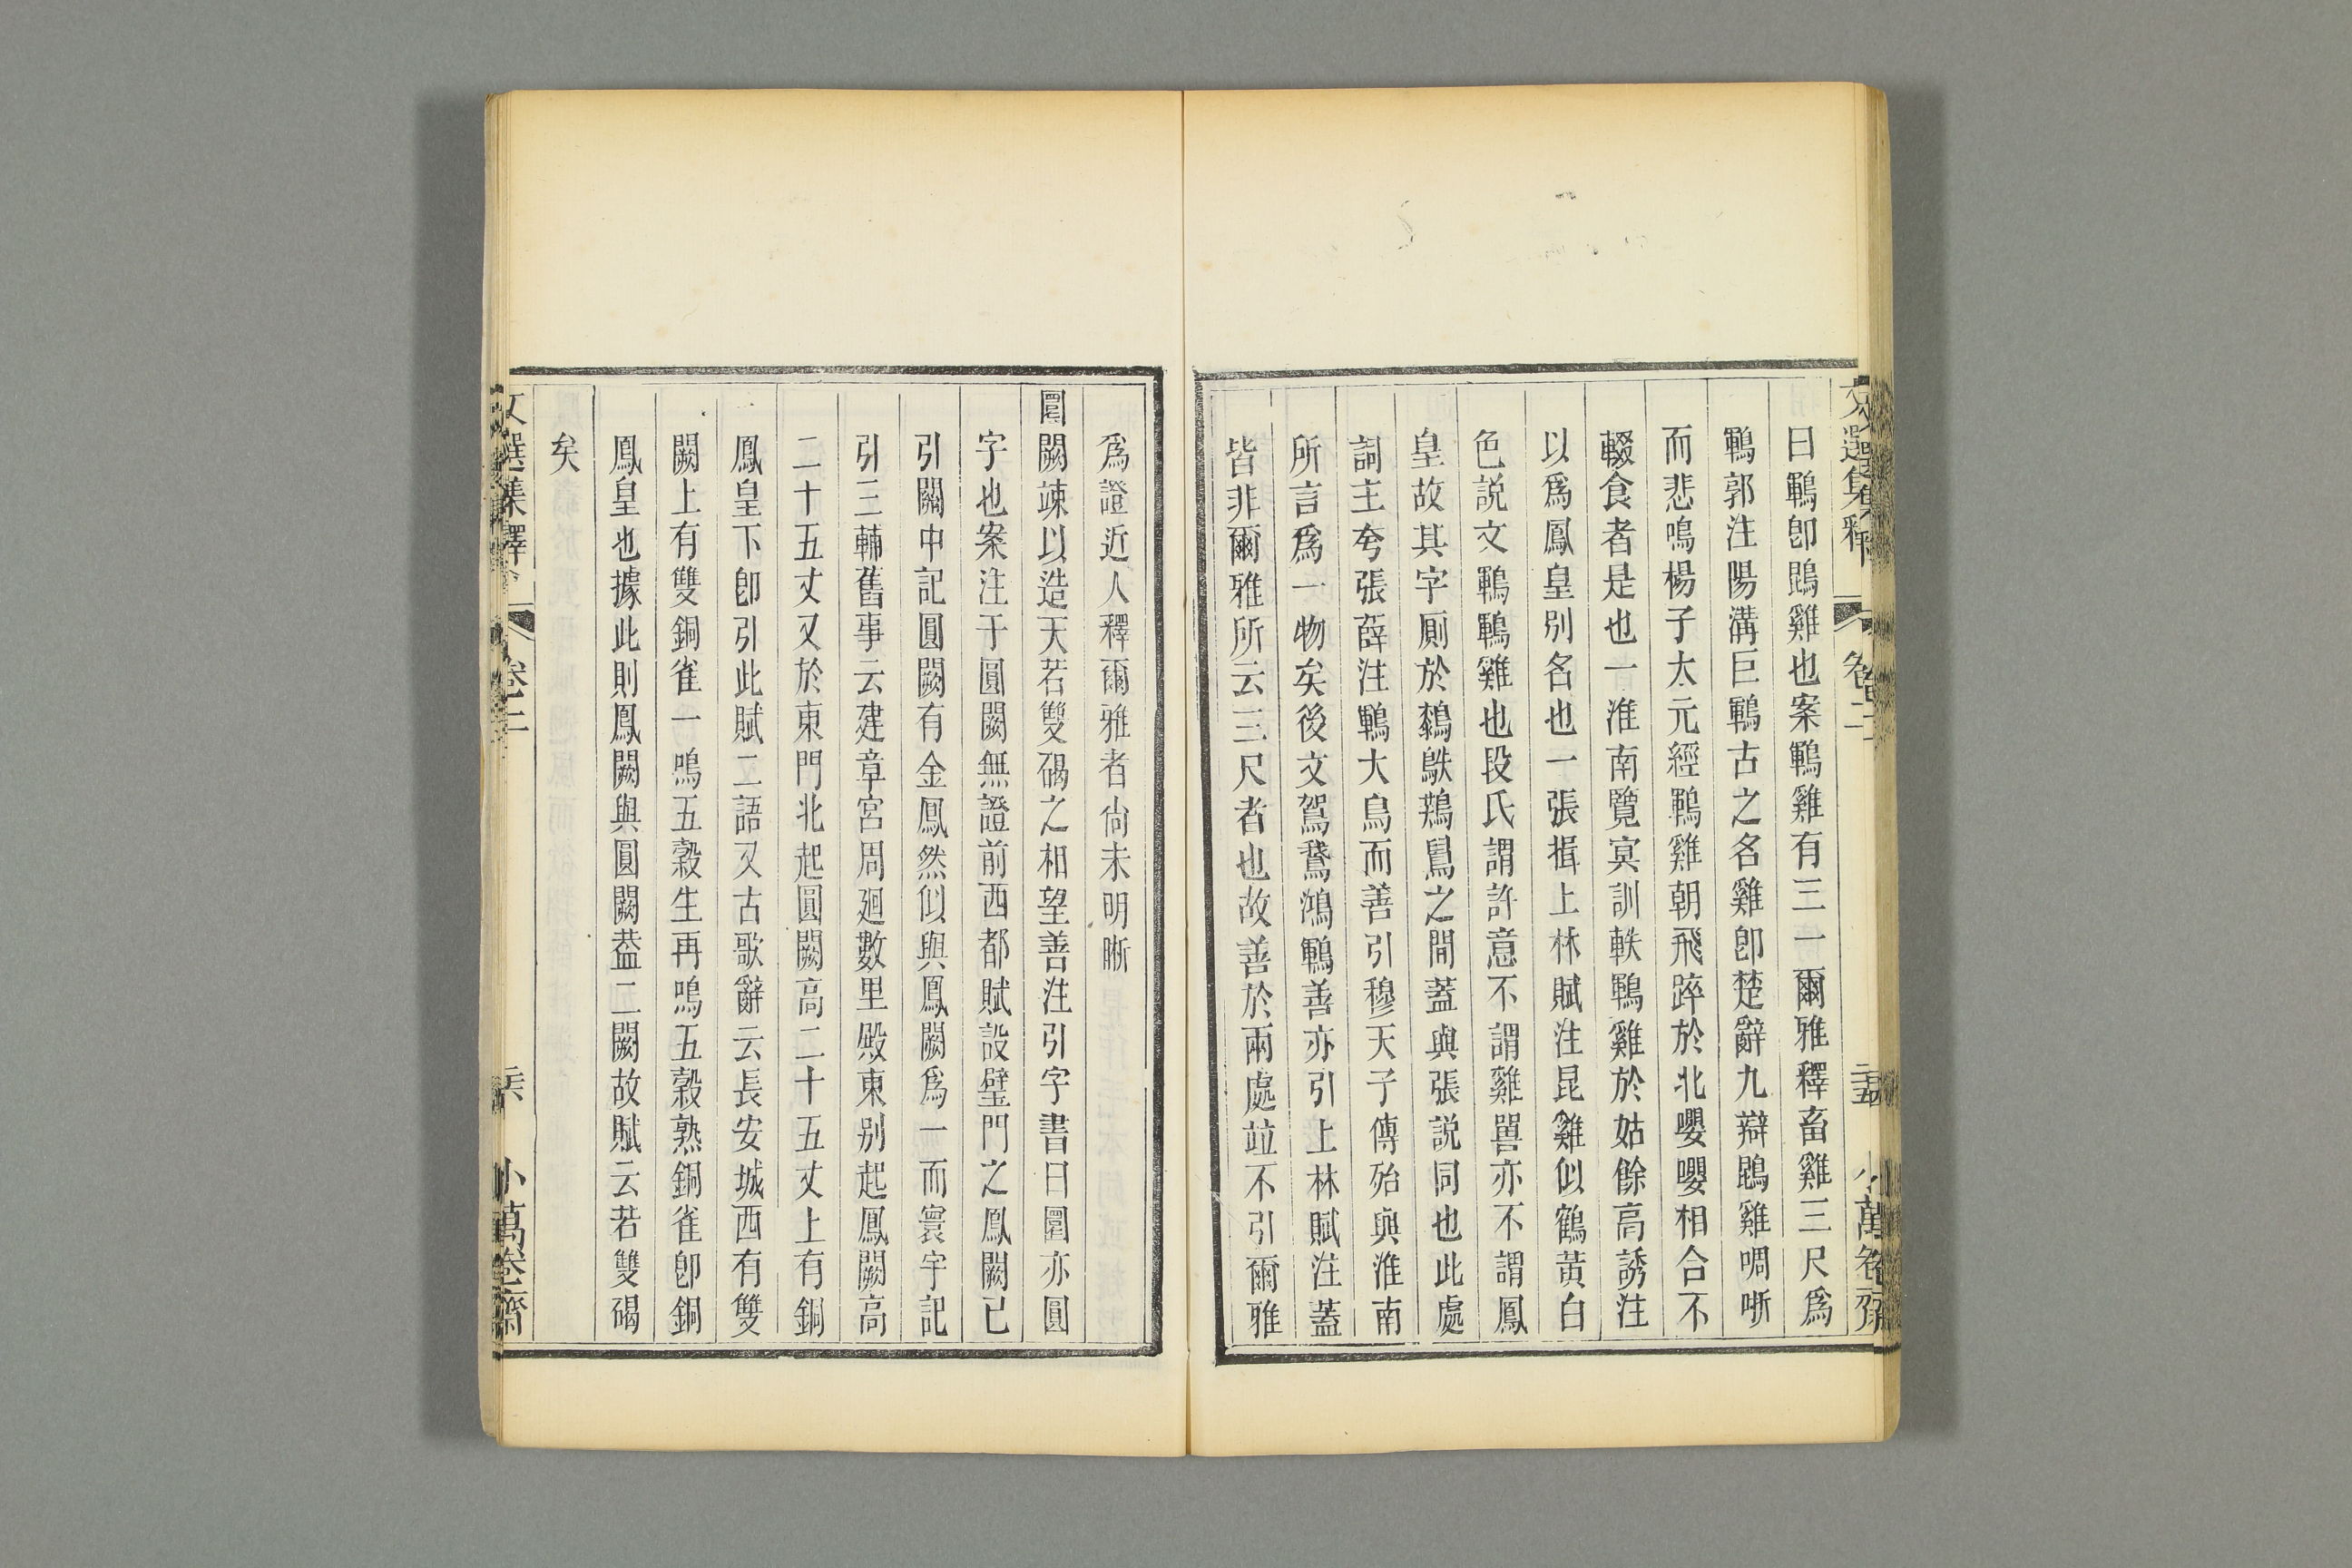 曰鶤卽鵾雞也案鶤雞有三一爾雅釋畜雞三尺爲
鶤郭注陽溝巨鶤古之名雞卽楚辭九辯鵾雞啁哳
而悲鳴楊子太元經鶤雞朝飛踤於北嚶嚶相合不
輟食者是也一淮南覽冥訓軼鶤雞於姑餘高誘注
以爲鳳皇別名也一張揖上林賦注昆雞似鶴黃白
色說文鶤鶤雞也段氏謂許意不謂雞嘼亦不謂鳳
皇故其字厠於鷜鴃鶪之閒蓋與張說同也此處
詞主夸張薛注鶤大鳥而善引穆天子傳殆與淮南
所言爲一物矣後文鴐鵞鴻鶤善亦引上林賦注蓋
皆非爾雅所云三尺者也故善於兩處竝不引爾雅
爲證近人釋爾雅者尙未明晰
圜闕竦以造天若雙碣之相望善注引字書曰圜亦圓
字也案注于圓闕無證前西都賦設璧門之鳳闕已
引關中記圓闕有金鳳然似與鳳闕爲一而寰宇記
引三輔舊事云建章宮周廻數里殿東別起鳳闕高
二十五丈又於東門北起圓闕高二十五丈上有銅
鳳皇下卽引此賦二語又古歌辭云長安城西有雙
闕上有雙銅雀一鳴五穀生再鳴五穀熟銅雀卽銅
鳳皇也據此則鳳闕與圓闕葢二闕故賦云若雙碣
矣
文選集釋 卷二 小萬卷齋